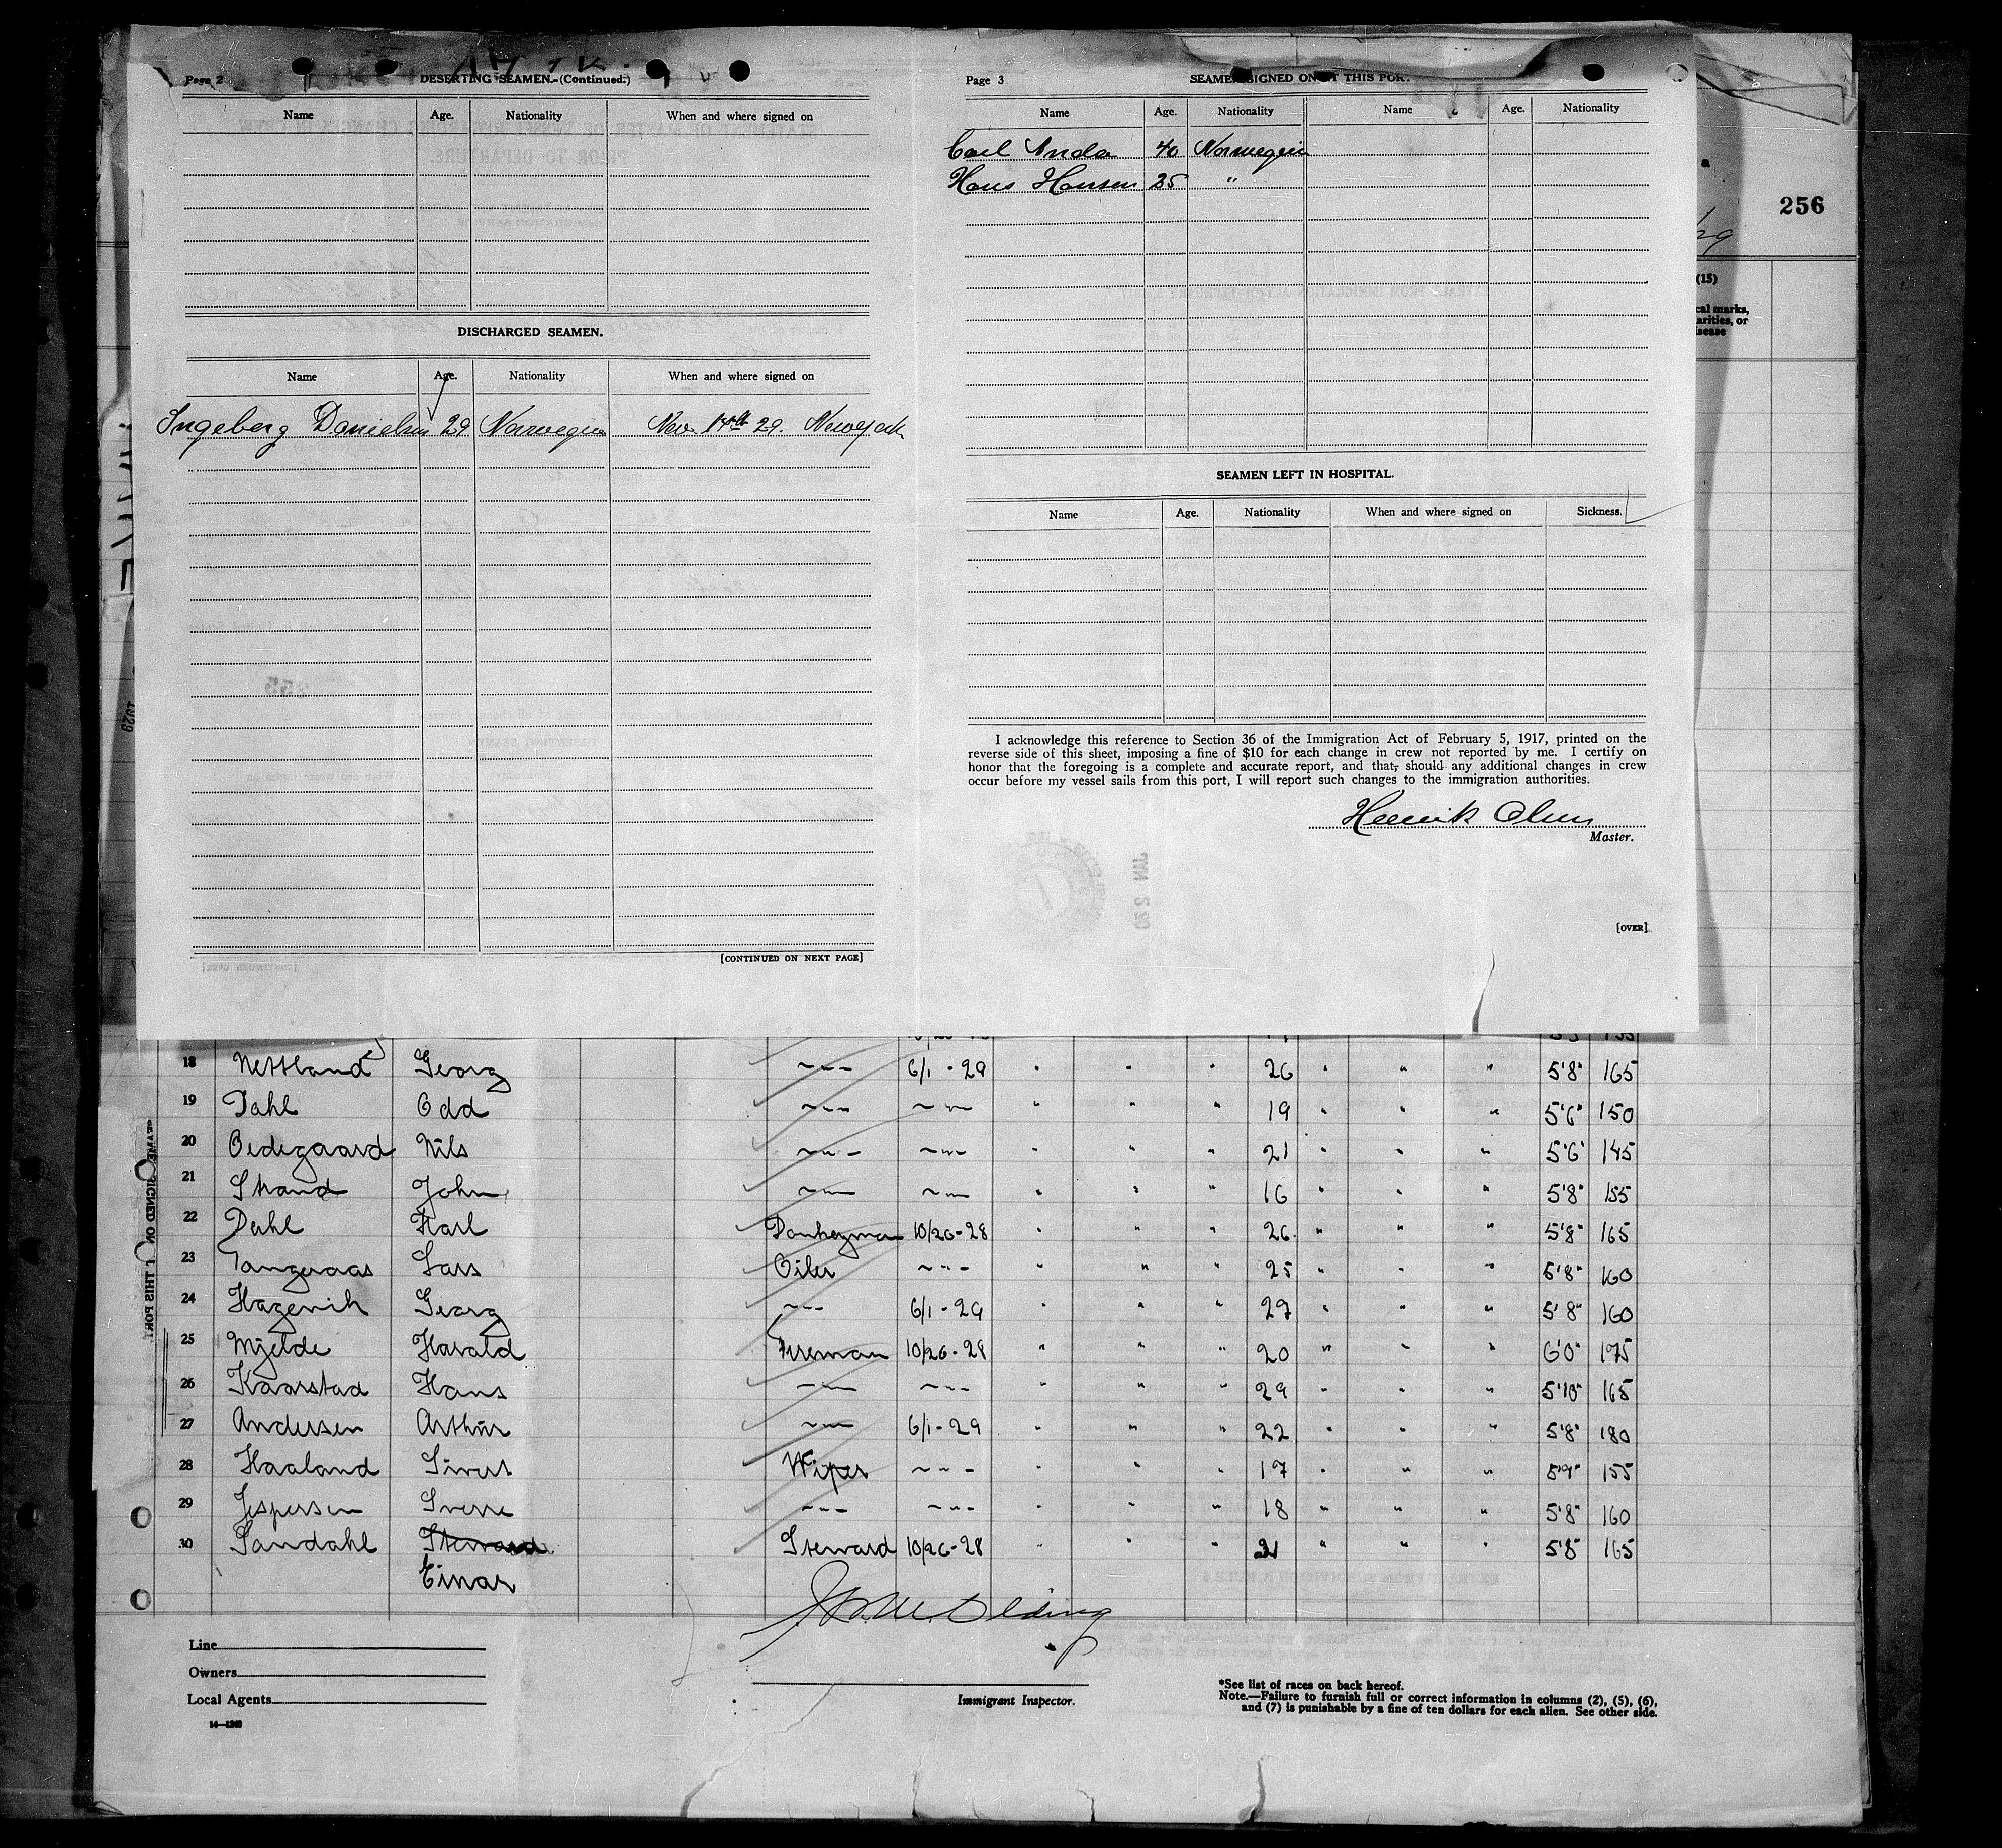 Page 2
DESERTING SEAMEN.-(Continued.)
Name Age. Nationality When and where signed on
DISCHARGED SEAMEN.
Name Age. Nationality When and where signed on
Ingeberg Danielsen 29 Norwegian Nov. 14th 29. Newyork
[CONTINUED ON NEXT PAGE]
Page 3
SEAMEN SIGNED ON AT THIS PORT.
Name Age. Nationality Name Age. Nationality
Carl Anda 40 Norwegian
Hans Hansen 25 "
SEAMEN LEFT IN HOSPITAL.
Name Age. Nationality When and where signed on Sickness.
I acknowledge this reference to Section 36 of the Immigration Act of February 5, 1917, printed on the
reverse side of this sheet, imposing a fine of $10 for each change in crew not reported by me. I certify on
honor that the foregoing is a complete and accurate report, and that, should any additional changes in crew
occur before my vessel sails from this port, I will report such changes to the immigration authorities.
Henrik Olsen
Master.
[OVER]
256
(15)
cal marks,
arities, or
isease
18 Nettland Georg ~~~ 6/1-29 " " " 26 " " " 5'8" 165
19 Dahl Odd ~~~ ~~~ " " " 19 " " " 5'6" 150
20 Oedegaard Nils ~~~ ~~~ " " " 21 " " " 5'6" 145
21 Strand John ~~~ ~~~ " " " 16 " " " 5'8" 155
22 Dahl Karl Donkeyman 10/26-28 " " " 26 " " " 5'8" 165
23 Tangeraas Lars Oiler ~~~ " " " 25 " " " 5'8" 160
24 Hagevik Georg ~~~ 6/1-29 " " " 27 " " " 5'8" 160
25 Mjelde Harald Fireman 10/26-28 " " " 20 " " " 6'0" 175
26 Kaarstad Hans ~~~ ~~~ " " " 29 " " " 5'10" 165
27 Andersen Arthur ~~~ 6/1-29 " " " 22 " " " 5'8" 180
28 Haaland Sivert Wiper ~~~ " " " 17 " " " 5'9" 155
29 Jespersen Sverre ~~~ ~~~ " " " 18 " " " 5'8" 160
30 Sandahl Steward Steward 10/26-28 " " " 31 " " " 5'8" 165
Einar
Line
Owners
Local Agents
14—1240
Immigrant Inspector.
*See list of races on back hereof.
Note.—Failure to furnish full or correct information in columns (2), (5), (6),
and (7) is punishable by a fine of ten dollars for each alien. See other side.